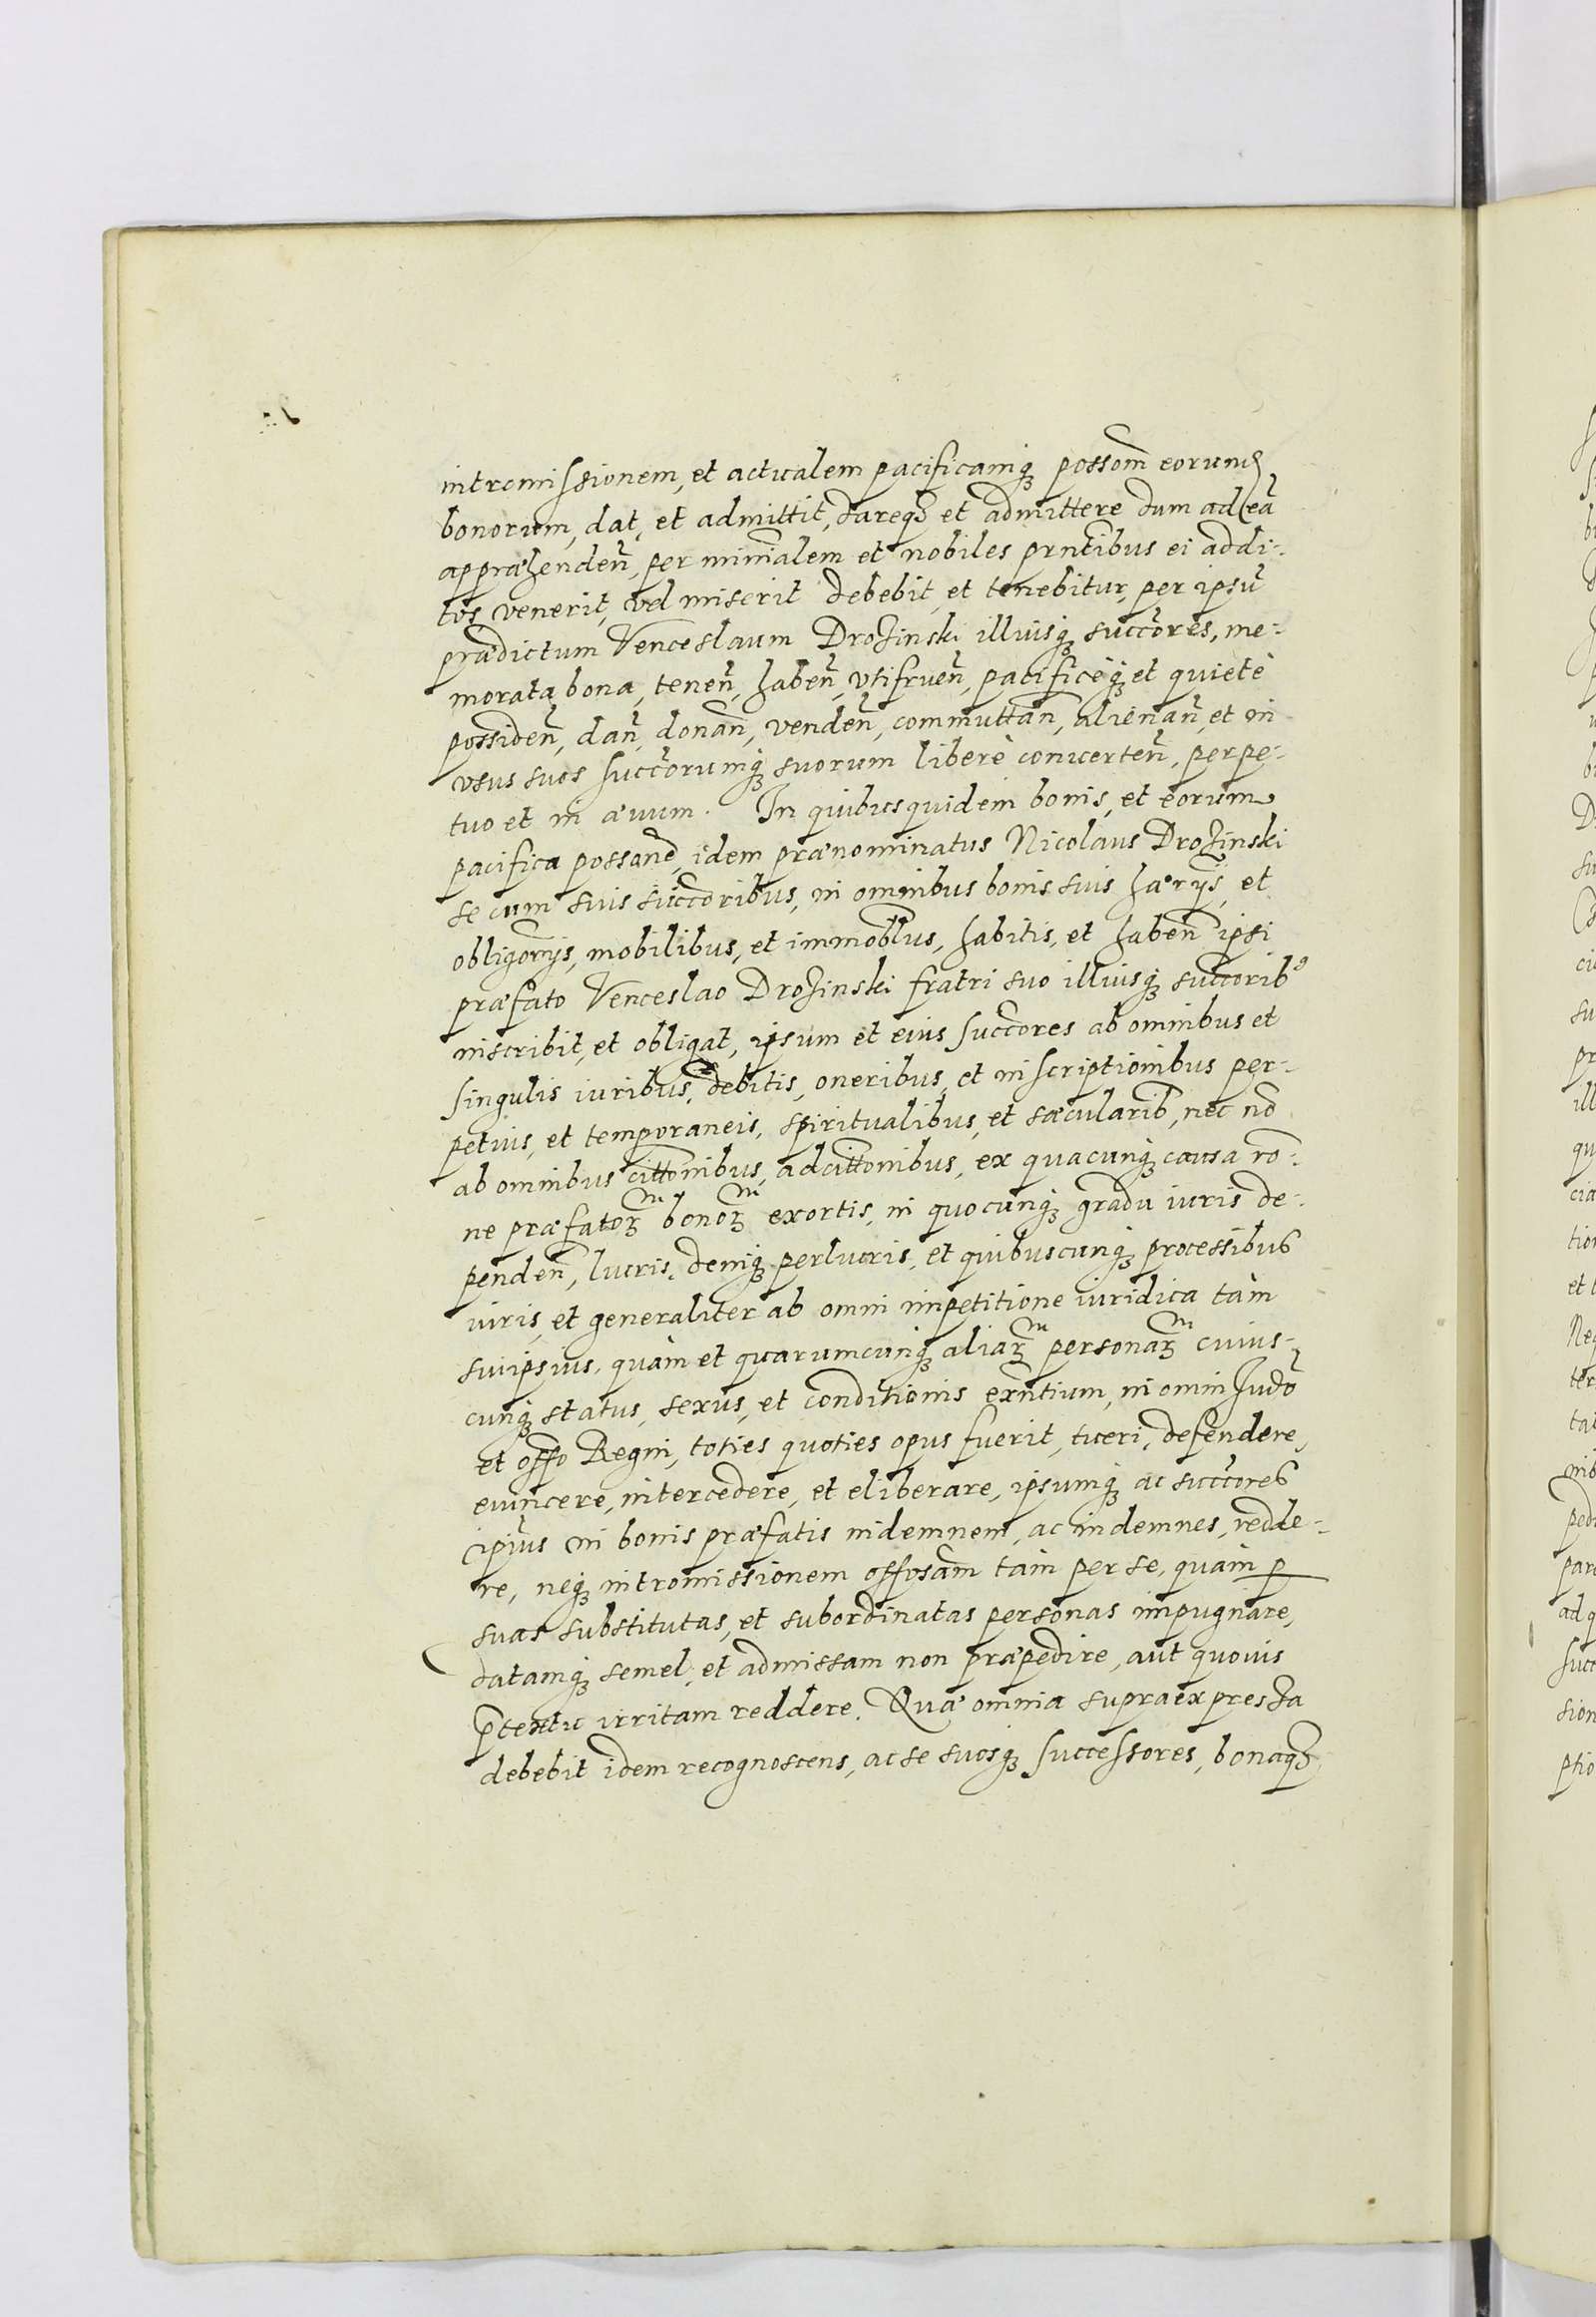 intromissionem, et actualem pacificamq́ꝫ possom̃ eorund̃
bonorum, dat, et admittit, dareqꝫ et admittere dum ad eã
appræhenden̄, per minĩalem et nobiles prñtibus ei addi-
tos venerit, vel miserit debebit, et tenebitur, per ipsũ
prædictum Venceslaum Drozinski illiusq́ꝫ succores, me-
morata bona, tenen̄, haben̄, vtifruen̄, pacificèq́ꝫ et quietè
possiden̄, dan̄, donan̄, venden̄, commuttan̄, alienan̄, et in
vsus suos succorumq́ꝫ suorum liberè conuerten̄, perpe-
tuo et in æuum. In quibus quidem bonis, et eorum
pacifica possone, idem prænominatus Nicolaus Drozinski
se cum suis succoribus, in omnibus bonis suis hærijs, et
obligorijs, mobilibus, et immoblbus, habitis, et haben̄ ipsi
præfato Venceslao Drozinski fratri suo illiusq́ꝫ succorib9
inscribit, et obligat, ipsum et eius succores ab omnibus et
singulis iuribus, debitis, oneribus, et inscriptionibus per-
petuis, et temporaneis, spiritualibus, et sæcularib, nec nõ
ab omnibus cittonibus, adcittonibus, ex quacunq́ꝫ causa ro-
ne præfatoꝝm bonoꝝm exortis, in quocunq́ꝫ gradu iuris de-
penden̄, lucris, deniq́ꝫ perlucris, et quibuscunq́ꝫ processibus
iuris, et generaliter ab omni impetitione iuridica tàm
suiipsius, quàm et quarumcunq́ꝫ aliaꝝm personaꝝm cuius-
cunq́ꝫ status, sexus, et conditionis exñtium, in omni Judõ
et offo Regni, toties quoties opus fuerit, tueri, defendere,
euincere, intercedere, et eliberare, ipsumq́ꝫ ac succores
ipius in bonis præfatis indemnem, ac indemnes, redde-
re, neq́ꝫ intromissionem offosam tàm per se, quàm ꝑ
suas substitutas, et subordinatas personas impugnare,
datamq́ꝫ semel, et admissam non præpedire, aut quouis
p̃textu irritam reddere. Quæ omnia supra expressa
debebit idem recognoscens, ac se suosq́ꝫ successores, bonaqꝫ